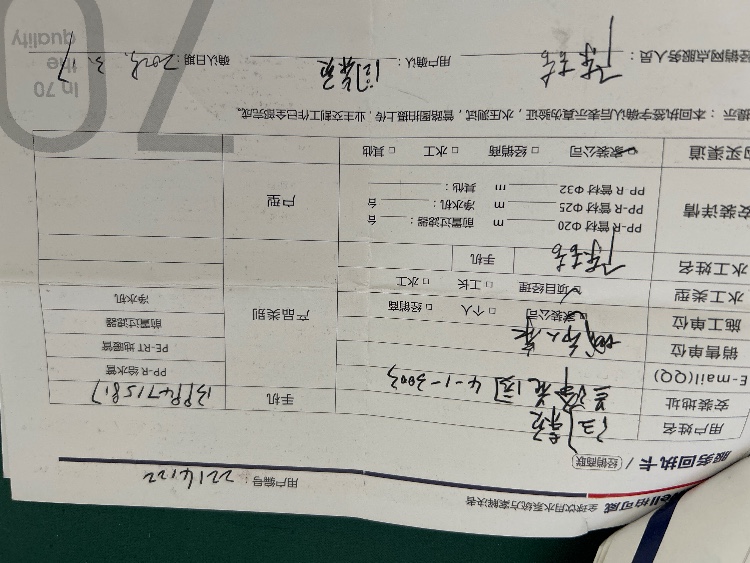 伯可威 全球饮用水系统方案解决者
用户编号：2214122
服务回执卡 / 经销商联
用户姓名
安装地址 4-1-3003
手机
E-mail(QQ)
销售单位
施工单位 家装公司 □ 个人 □ 经销商
水工类型 项目经理 □ 工长 □ 水工
水工姓名 手机
产品类别
PP-R 给水管
PE-RT 地暖管
前置过滤器
净水机
安装详情
PP-R 管材 Φ20 m 前置过滤器： 台
PP-R 管材 Φ25 m 净水机： 台
PP-R 管材 Φ32 m 其他：
户型
购买渠道 家装公司 □ 经销商 □ 水工 □ 其他
提示：本回执签字确认后表示真伪验证，水压测试，管路图拍摄上传，业主交割工作已全部完成。
经销网点服务人员： 用户确认： 确认日期：2025.3.17
In 70
the
quality
70